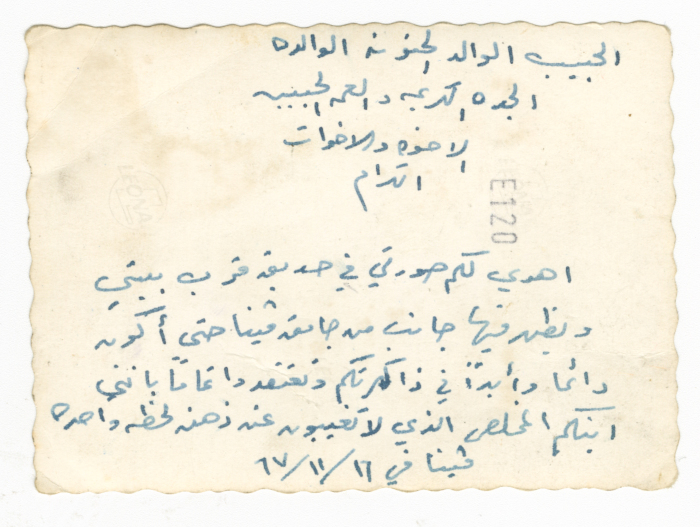 الحبيب الوالد الحنونه الوالده
الجده الكريمه والعمه الحبيبه
الاخوه والاخوات
الكرام
E120
اهدي لكم صورتي في حديقه قرب بيتي
ويظهر فيها جانب من جامعة ڤينا حتى أكون
دائما وأبداً في ذاكرتكم وتعتقدوا تماماً بانني
ابنكم المخلص الذي لا تغيبون عن ذهنه لحظه واحده
ڤينا في ١٦/١١/٦٧